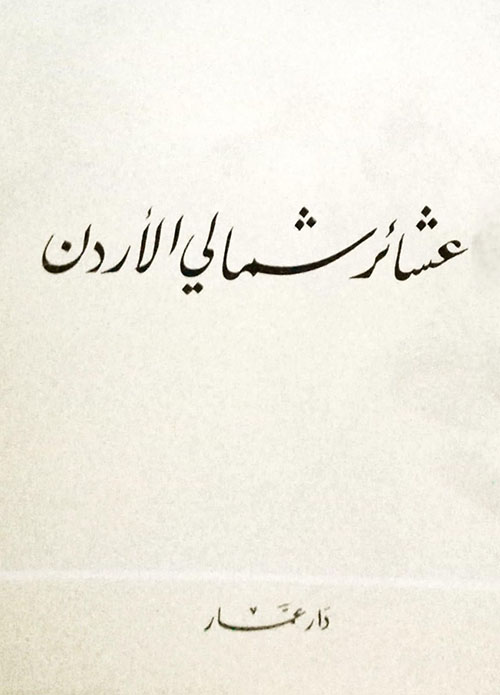 عشائر شمالي الأردن
دار عمَّار